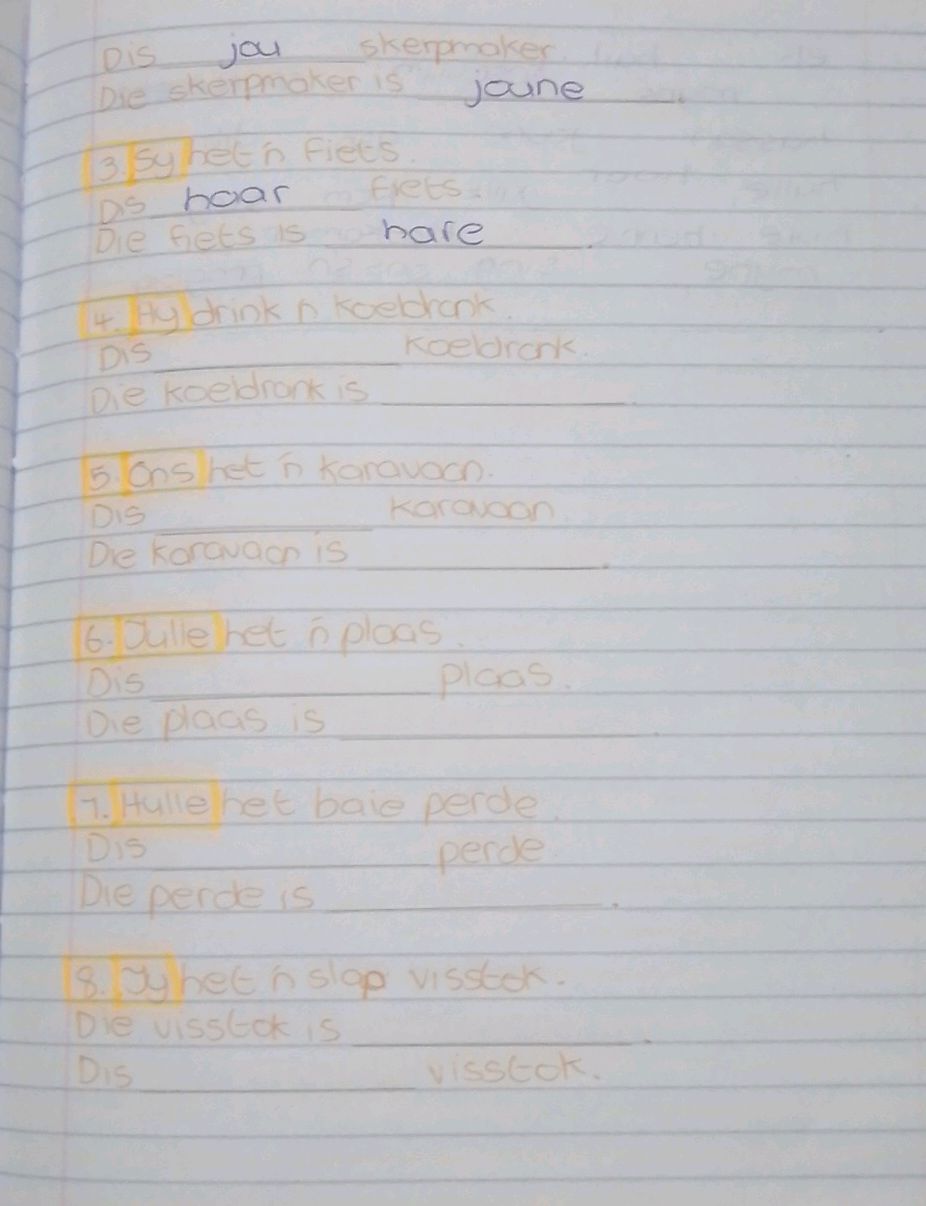 Dis jou skerpmaker
Die skerpmaker is joune.
3. Sy het 'n fiets.
Dis haar fiets.
Die fiets is hare.
4. Hy drink 'n koeldrank.
Dis ____________ koeldrank.
Die koeldrank is ____________
5. Ons het 'n karavaan.
Dis ____________ karavaan
Die karavaan is ____________.
6. Julle het 'n plaas.
Dis ____________ plaas.
Die plaas is ____________.
7. Hulle het baie perde.
Dis ____________ perde
Die perde is ____________.
8. Jy het 'n slap visstok.
Die visstok is ____________.
Dis ____________ visstok.